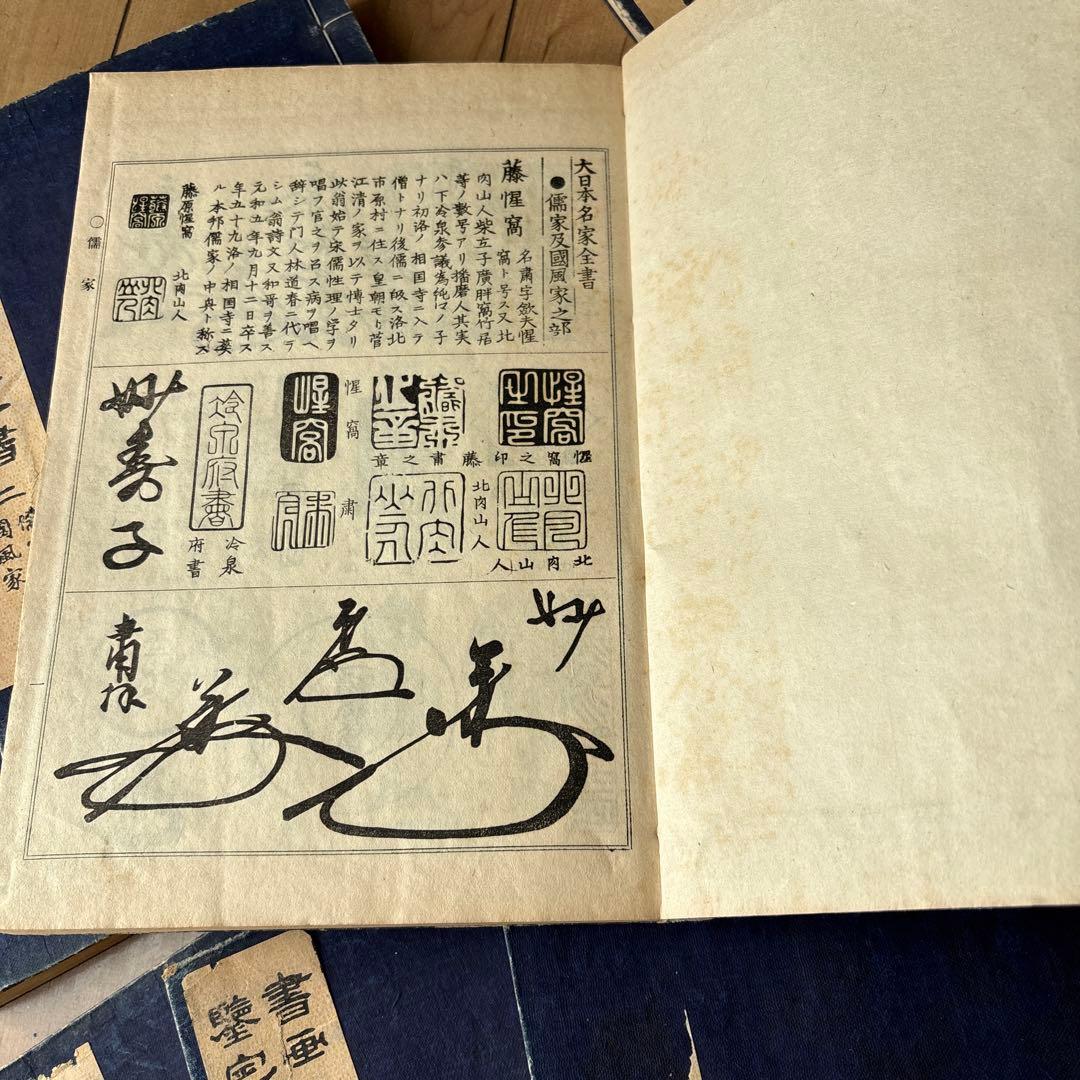 大日本名家全書
●儒家及國風家之部
藤惺窩
名肅字歛夫惺
窩ト号ス又北
肉山人柴立子廣胖窩竹居
等ノ數号アリ播磨人其実
ハ下冷泉参議為純ノ子
ナリ初洛ノ相国寺ニ入テ
僧トナリ後儒ニ皈ス洛北
市原村ニ住ス皇朝モト菅
江清ノ家ヲ以テ博士タリ
此翁始テ宋儒性理ノ学ヲ
唱フ官之ヲ召ス病ヲ唱ヘ
辞シテ門人林道春ニ代ラ
シム翁詩文又和哥ヲ善ス
元和五年九月十二日卒ス
年五十九洛ノ相国寺ニ葬
ル本邦儒家ノ中興ト称ス
藤原惺窩
北肉山人
○儒家
惺窩之印
藤肅之章
惺窩
北肉山人
北肉山人
肅
冷泉
府書
妙壽子
妙
書画
鑒定
書二
國風家